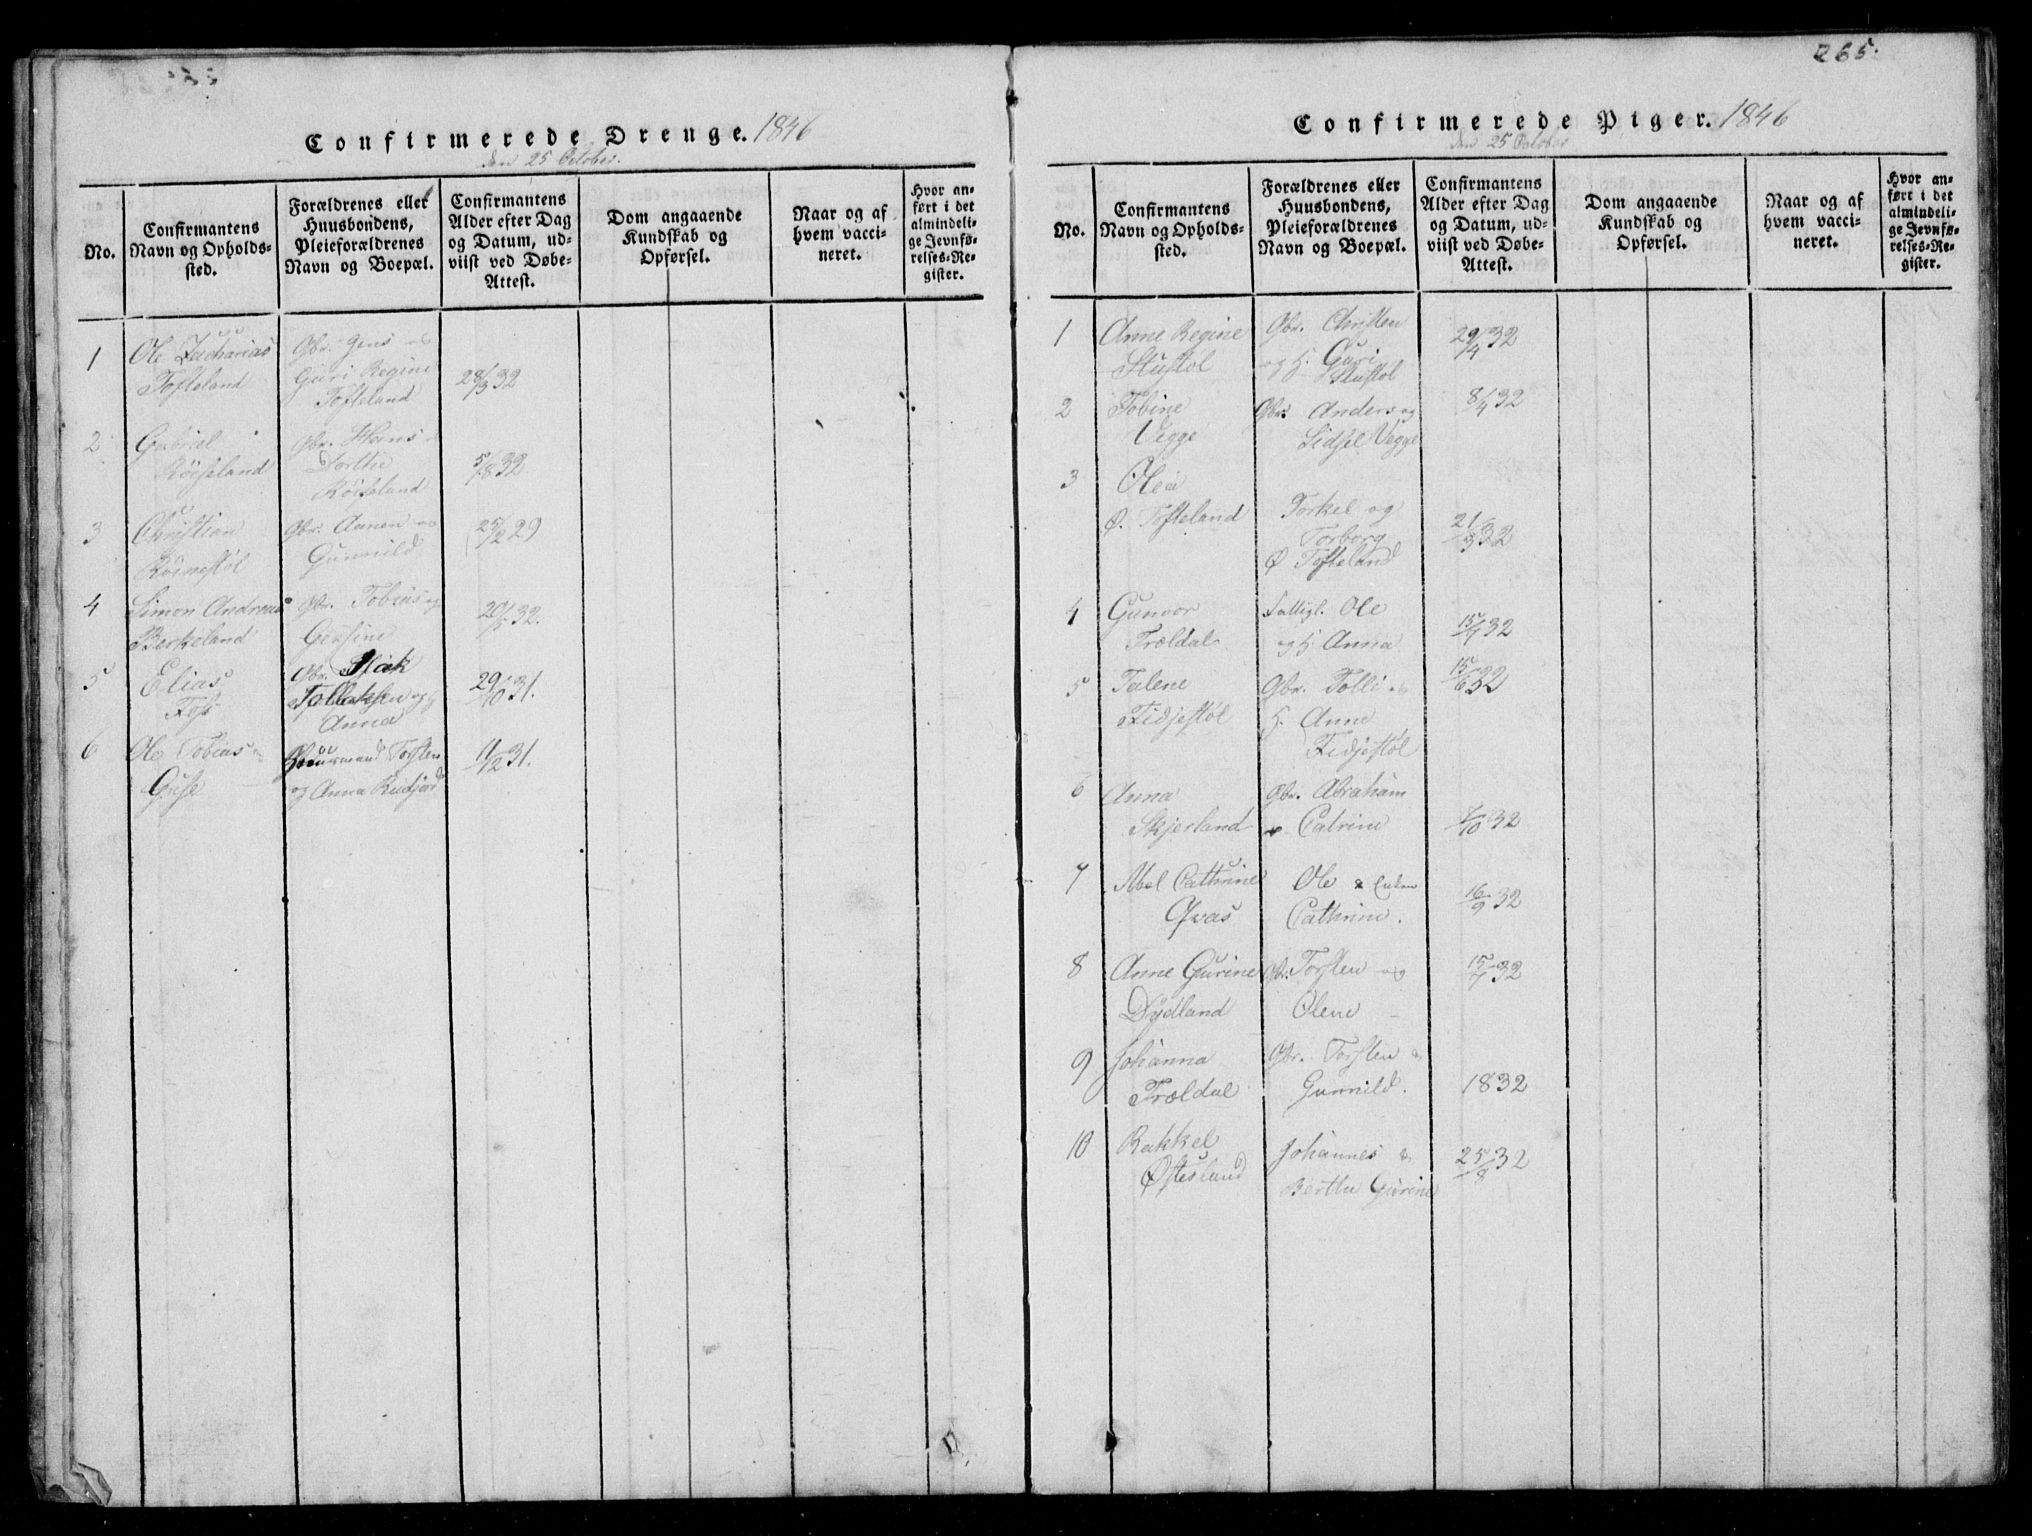 Confirmerede Drenge. 1846
den 25 October.
No.
Confirmantens
Navn og Opholds-
sted.
Forældrenes eller
Huusbondens,
Pleieforældrenes
Navn og Boepæl.
Confirmantens
Alder efter Dag
og Datum, ud-
viist ved Døbe-
Attest.
Dom angaaende
Kundskab og
Opførsel.
Naar og af
hvem vacci-
neret.
Hvor an-
ført i det
almindeli-
ge Jevnfø-
relses-Re-
gister.
1
Ole Zacharias
Tofteland
Gbr. Jens og
Guri Regine
Tofteland
28/3 32
2
Gabriel
Röiseland
Gbr. Hans
Dorthe
Röiseland
5/8 32
3
Christian
Röinestöl
Gbr. Aanen og
Gunnild
25/12 29
4
Simon Andreas
Berkeland
Gbr. Tobias og
Gersine
20/5 32.
5
Elias
Foss
Gbr. Isaak
Tollaksen og
Anna
29/10 31.
6
Ole Tobias
Guse
Torsten
og Anna
11/12 31.
265.
Confirmerede Piger. 1846
den 25 October
No.
Confirmantens
Navn og Opholds-
sted.
Forældrenes eller
Huusbondens,
Pleieforældrenes
Navn og Boepæl.
Confirmantens
Alder efter Dag
og Datum, ud-
viist ved Døbe-
Attest.
Dom angaaende
Kundskab og
Opførsel.
Naar og af
hvem vacci-
neret.
Hvor an-
ført i det
almindeli-
ge Jevnfø-
relses-Re-
gister.
1
Anne Regine
Stustöl
Gbr. Christen
og H. Guri
Stustöl
29/4 32
2
Tobine
Vegge
Gbr. Anders og
Sidsel Vegge
8/4 32
3
Olea
Ø. Tofteland
Torkel og
Torborg
Ø Tofteland
21/3 32
4
Gunvor
Trældal
Fattigl. Ole
og H. Anna
15/7 32
5
Talene
Fidjestöl
Gbr. Tolli og
H. Anne
Fidjestöl
15/6 32
6
Anna
Skjerland
Gbr. Abraham
og Catrine
7/10 32
7
Abel Cathrine
Qvas
Ole & Enken
Cathrine.
16/9 32
8
Anne Gurine
Dydland
Gbr. Torsten og
Olene
15/7 32
9
Johanna
Trældal
Gbr. Torsten &
Gunnild.
1832
10
Rakkel
Østesland
Johannes &
Berthe Gurine
25/8 32